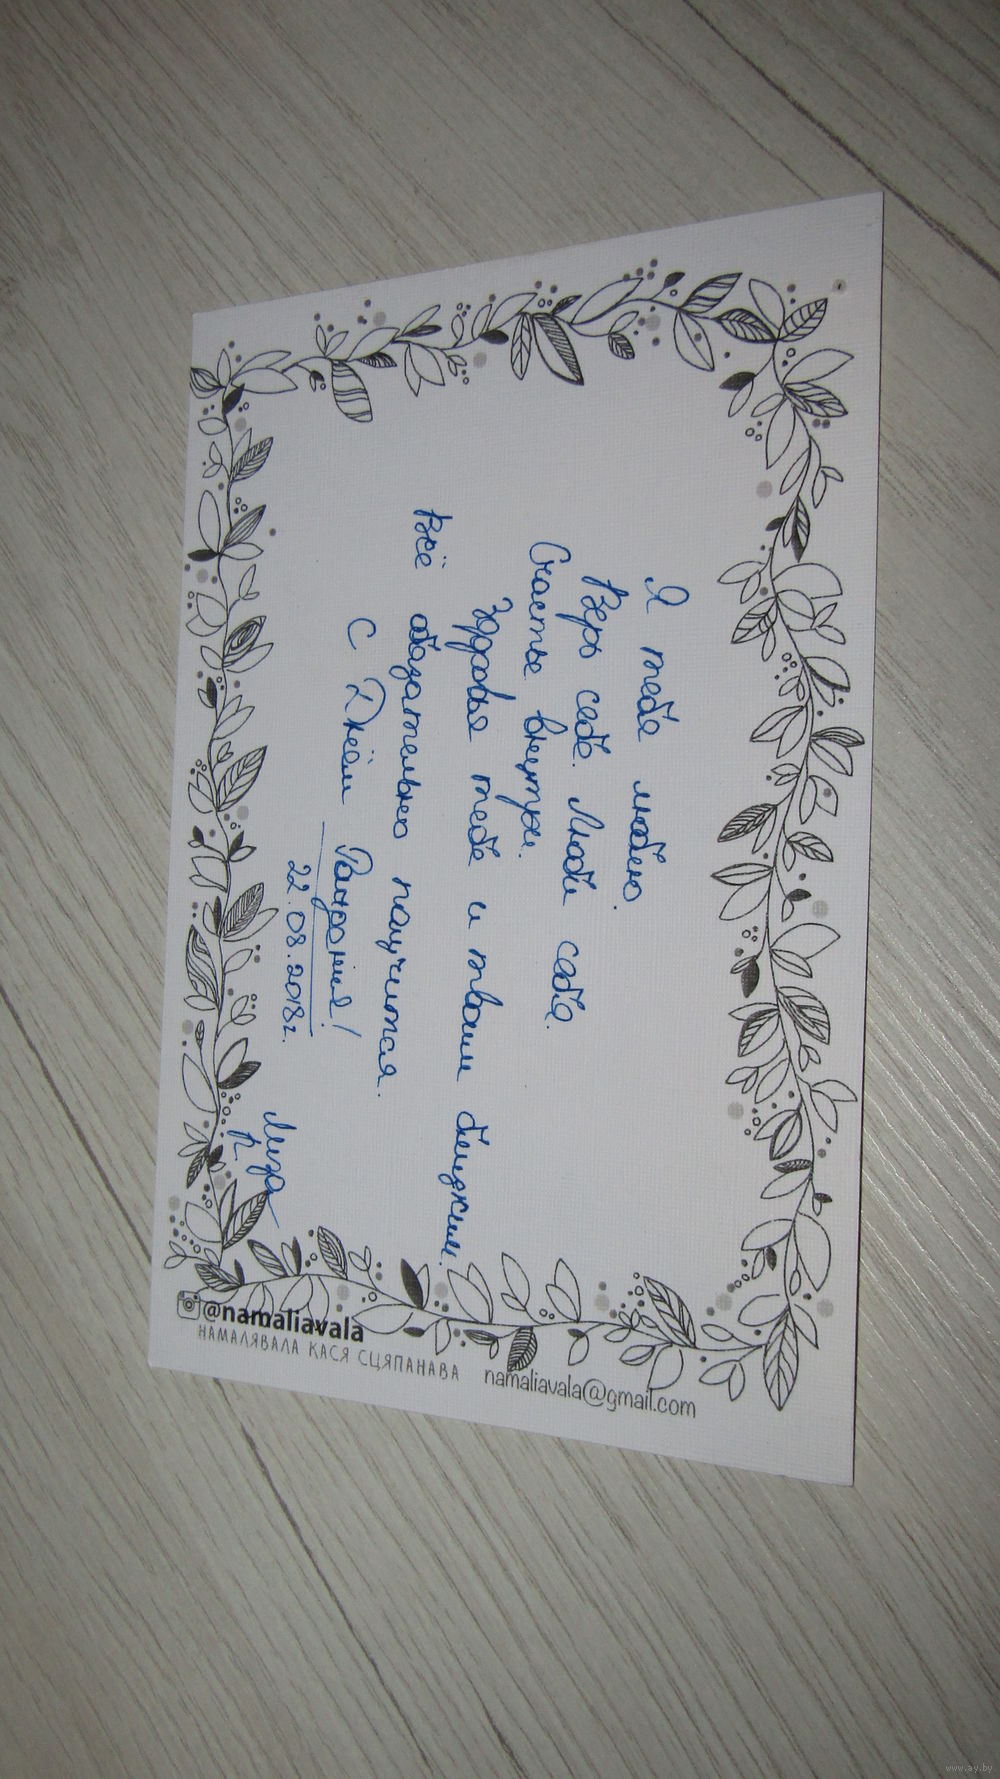 Я тебя люблю.
Верь себе. Люби себя.
Счастье внутри.
Здоровья тебе и твоим близким.
Всё обязательно получится.
С Днём Рождения!
22.08.2018г.
Лиза
Р
@namaliavala
НАМАЛЯВАЛА КАСЯ СЦЯПАНАВА
namaliavala@gmail.com
www.ay.by